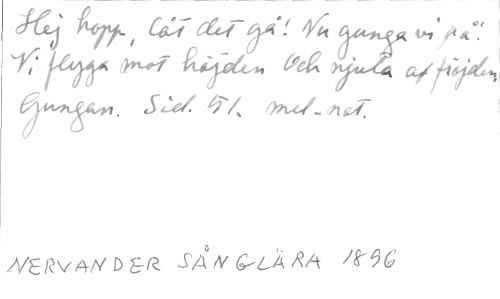 Hej hopp, låt det gå! Nu gunga vi på!
Vi flyga mot höjden Och njuta af fröjden,
Gungan. Sid. 51. mel-not.
NERVANDER SÅNGLÄRA 1896